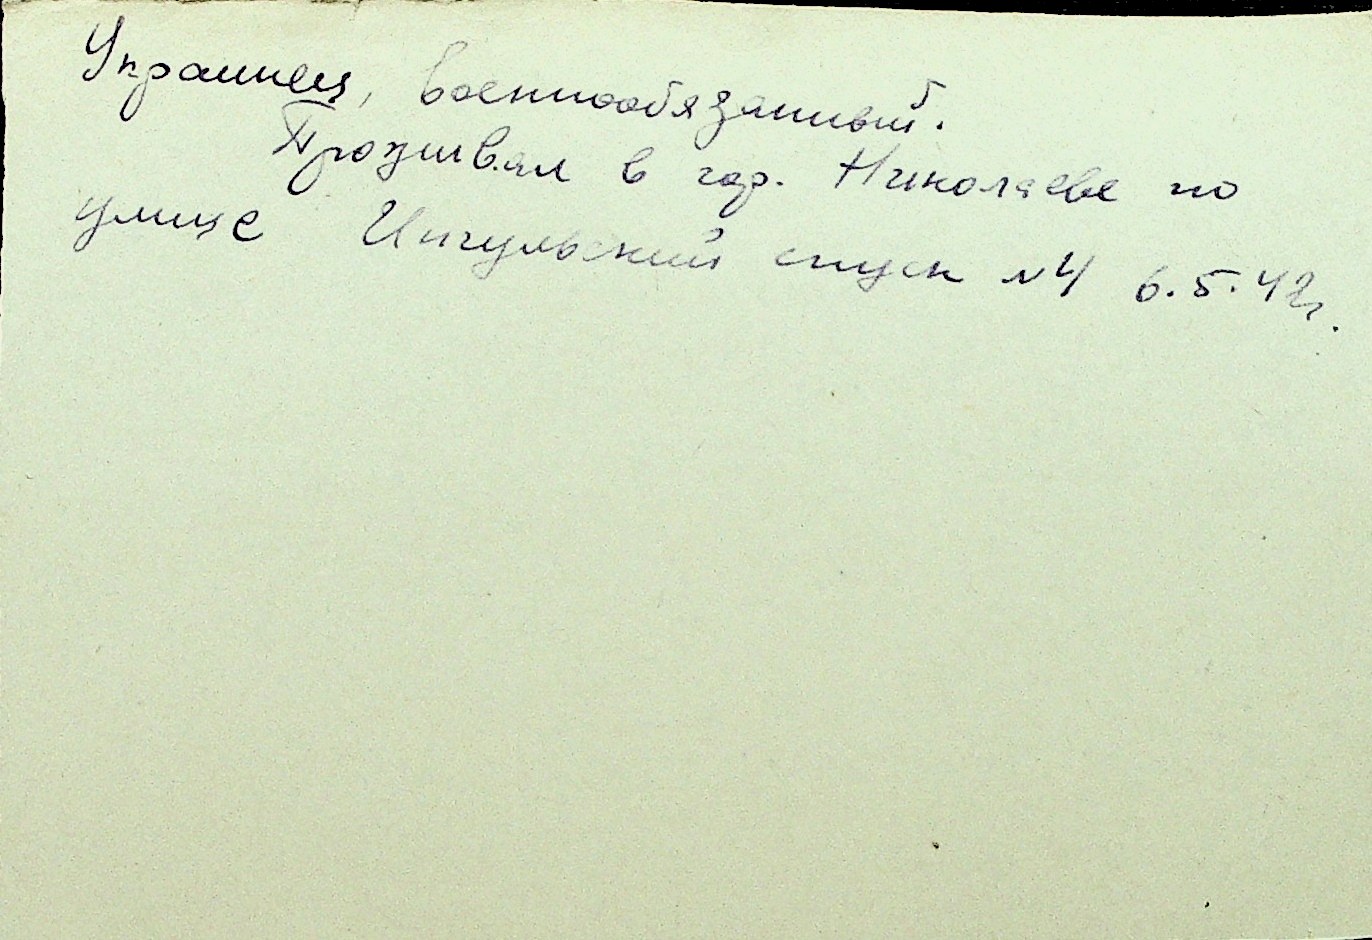 Украинец, военнообязанный.
Проживал в гор. Николаеве по
улице Ингульский спуск №4 6.5.42г.